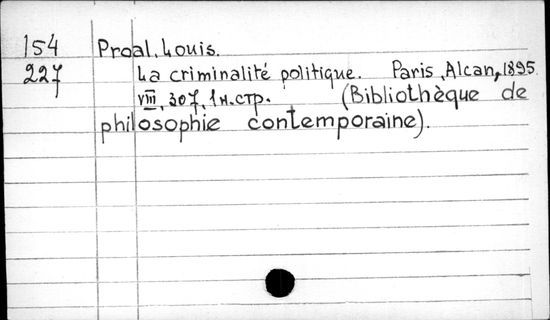 154 Proal, Louis.
227 La criminalité politique. Paris, Alcan, 1895
VIII, 307, 1 н.стр. (Bibliothèque de
philosophie contemporaine).